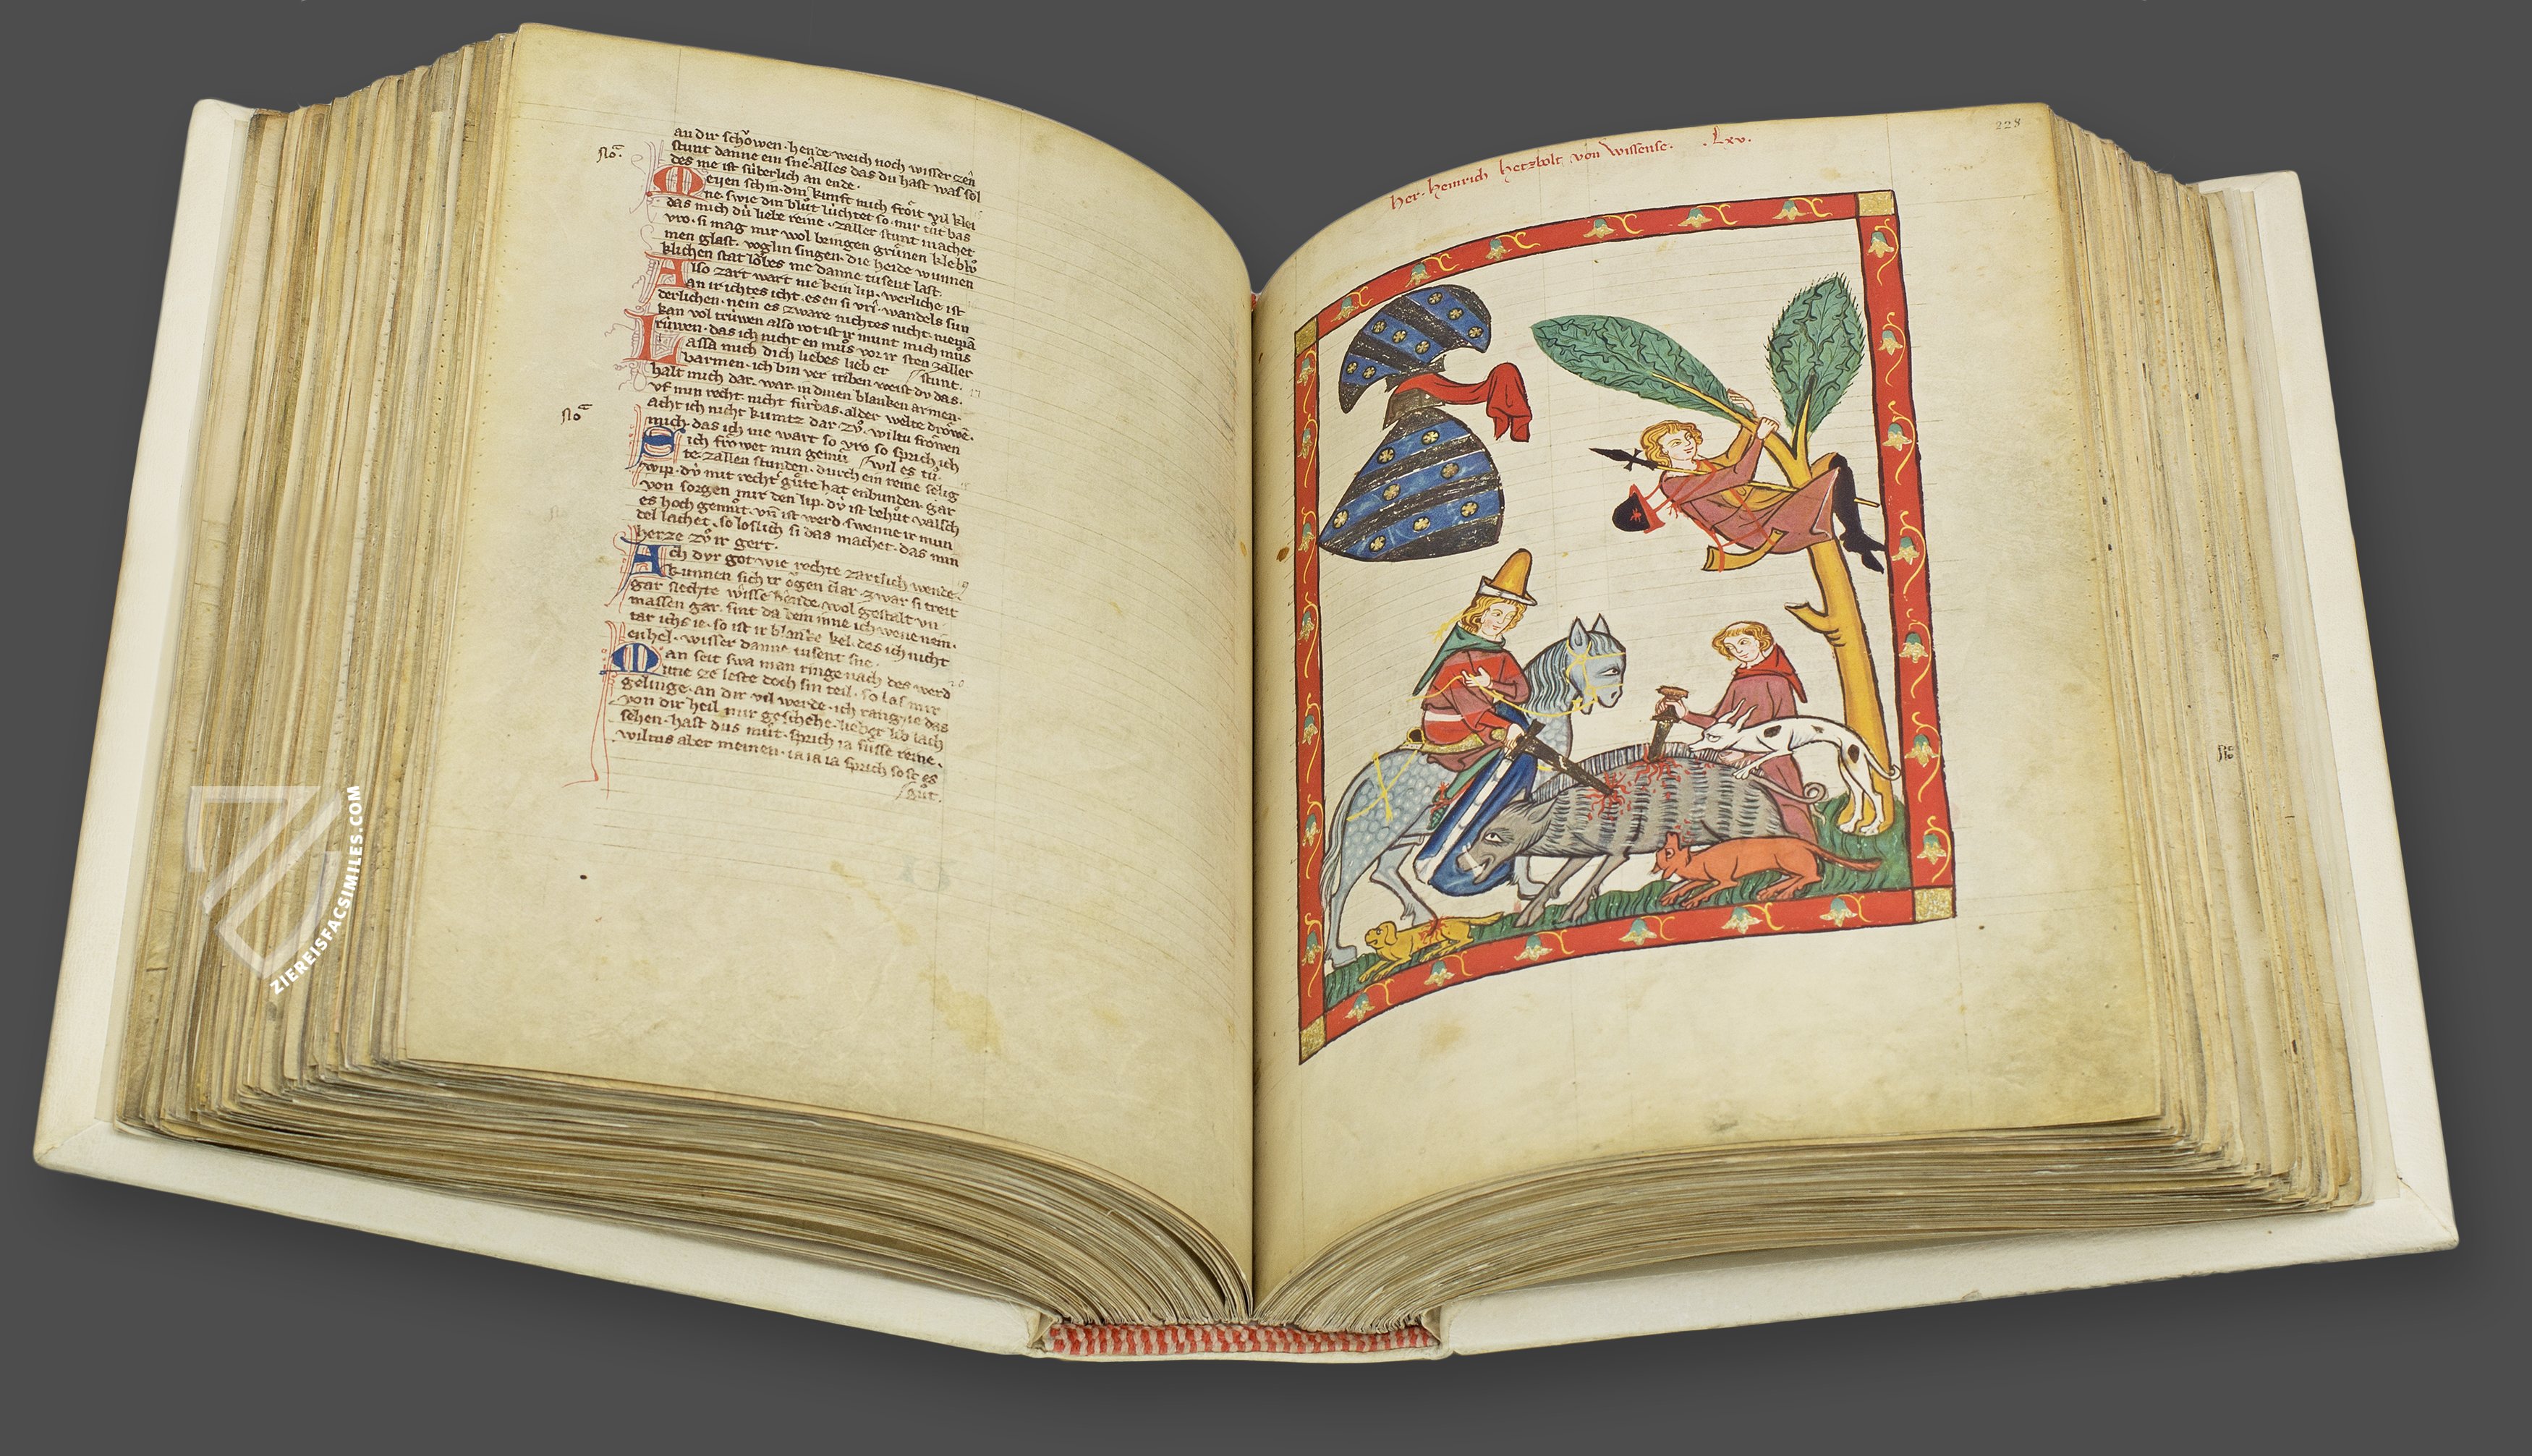 an dir schowen. hende weich noch wisser zen
stunt danne ein sne. alles das du hast was sol
des me ist suberlich an ende.
Meyen schin. din kunft mich froit vil klei
ne. swie din blut luchtet so. mir tut bas
das mich du liebe reine. zaller stunt machet
vro. si mag mir wol bringen grunen klebluo
men glast. voglin singen. die heide wunnen
klichen stat lobes me danne tusent last.
Also zart wart nie kein lip. werliche ist
an ir ichtes icht. es en si vri. wandels sun
derlichen. nein es zware nichtes nicht. niemā
kan vol truwen also rot ist ir munt mich mus
ruwen. das ich nicht en mus vor ir sten zaller
stunt.
Lassa mich dich liebes lieb er
barmen. ich bin ver triben weist du das.
halt mich dar. war in dinen blanken armen.
uf min recht. nicht furbas. alder welte drowē.
acht ich nicht kumtz dar zuo. wiltu frowen
mich. das ich nie wart so vro so sprich ich
wil es tuo.
Noͣ.
Noͣ
Sich frowet min gemu
te. zallen stunden. durch ein reine selig
wip. du mit rechter gute hat enbunden. gar
von sorgen mir den lip. du ist behut valsch
es hoch gemut. vn ist werd swenne ir mun
del lachet. so loslich si das machet. das min
herze zuo ir gert.
Ach dur got wie rechte zartlich wende.
kunnen sich ir ogen clar. zwar si treit
gar slechte wisse hende. wol gestalt vn
massen gar. sint da dem inne ich wene nein.
tar ichs ie. so ist ir blanke kel. des ich nicht
enhel. wisser danne tusent sne.
Man seit swa man ringe nach des werd
ime ze leste doch sin teil. so las mir
gelinge. an dir vil werde. ich range ie das
von dir heil mir geschehe. liebes lib lach
sehen. hast dus mut. sprich ia susse reine.
wiltus aber meinen. ia ia ia sprich so ist es
gut.
Her. Heinrich Hetzbolt von Wissense. .Lxv.
228
ZIEREISFACSIMILES.COM